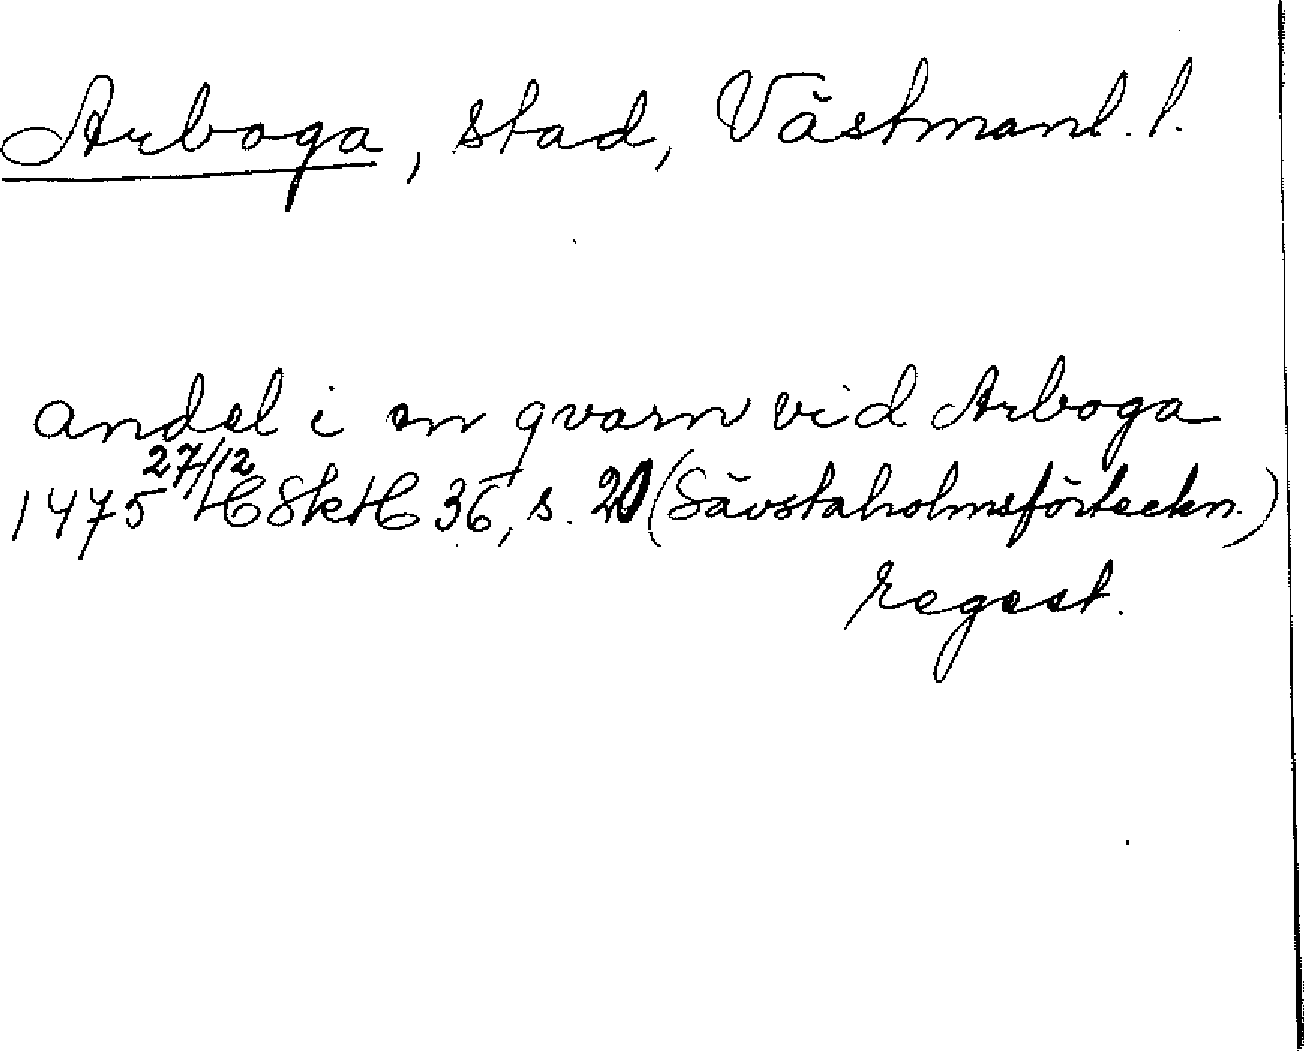 Arboga, stad, Västmanl. l.
andel i en qvarn vid Arboga
1475 27/12 HSkH 36, s. 20 (Sävstaholmsförteckn.)
regest.